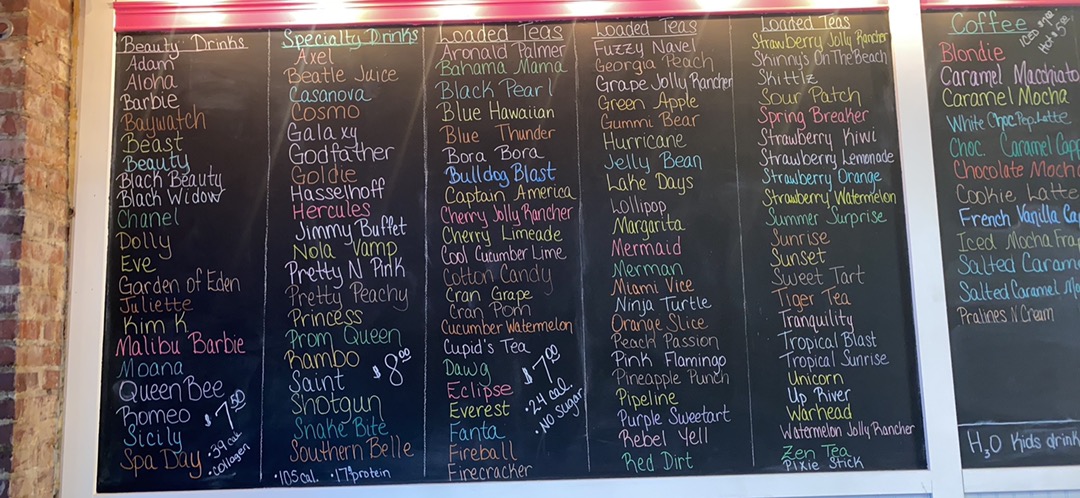 Beauty Drinks
Adam
Aloha
Barbie
Baywatch
Beast
Beauty
Black Beauty
Black Widow
Chanel
Dolly
Eve
Garden of Eden
Juliette
Kim K
Malibu Barbie
Moana
Queen Bee
Romeo
Sicily
Spa Day
$7.50
•39 cal
•collagen
Specialty Drinks
Axel
Beatle Juice
Casanova
Cosmo
Galaxy
Godfather
Goldie
Hasselhoff
Hercules
Jimmy Buffet
Nola Vamp
Pretty N Pink
Pretty Peachy
Princess
Prom Queen
Rambo
Saint
Shotgun
Snake Bite
Southern Belle
$8.00
•105 cal. •17g protein
Loaded Teas
Aronald Palmer
Bahama Mama
Black Pearl
Blue Hawaiian
Blue Thunder
Bora Bora
Bulldog Blast
Captain America
Cherry Jolly Rancher
Cherry Limeade
Cool Cucumber Lime
Cotton Candy
Cran Grape
Cran Pom
Cucumber Watermelon
Cupid's Tea
Dawg
Eclipse
Everest
Fanta
Fireball
Firecracker
$7.00
•24 cal.
•No sugar
Loaded Teas
Fuzzy Navel
Georgia Peach
Grape Jolly Rancher
Green Apple
Gummi Bear
Hurricane
Jelly Bean
Lake Days
Lollipop
Margarita
Mermaid
Merman
Miami Vice
Ninja Turtle
Orange Slice
Peach Passion
Pink Flamingo
Pineapple Punch
Pipeline
Purple Sweetart
Rebel Yell
Red Dirt
Loaded Teas
Strawberry Jolly Rancher
Skinny's On The Beach
Skittlz
Sour Patch
Spring Breaker
Strawberry Kiwi
Strawberry Lemonade
Strawberry Orange
Strawberry Watermelon
Summer Surprise
Sunrise
Sunset
Sweet Tart
Tiger Tea
Tranquility
Tropical Blast
Tropical Sunrise
Unicorn
Up River
Warhead
Watermelon Jolly Rancher
Zen Tea
Pixie Stick
Coffee
Iced
Hot
Blondie
Caramel Macchiato
Caramel Mocha
White Choc Pep Latte
Choc. Caramel Capp
Chocolate Mocha
Cookie Latte
French Vanilla Ca
Iced Mocha Fra
Salted Carame
Salted Caramel M
Pralines N Cream
H₂O Kids drink